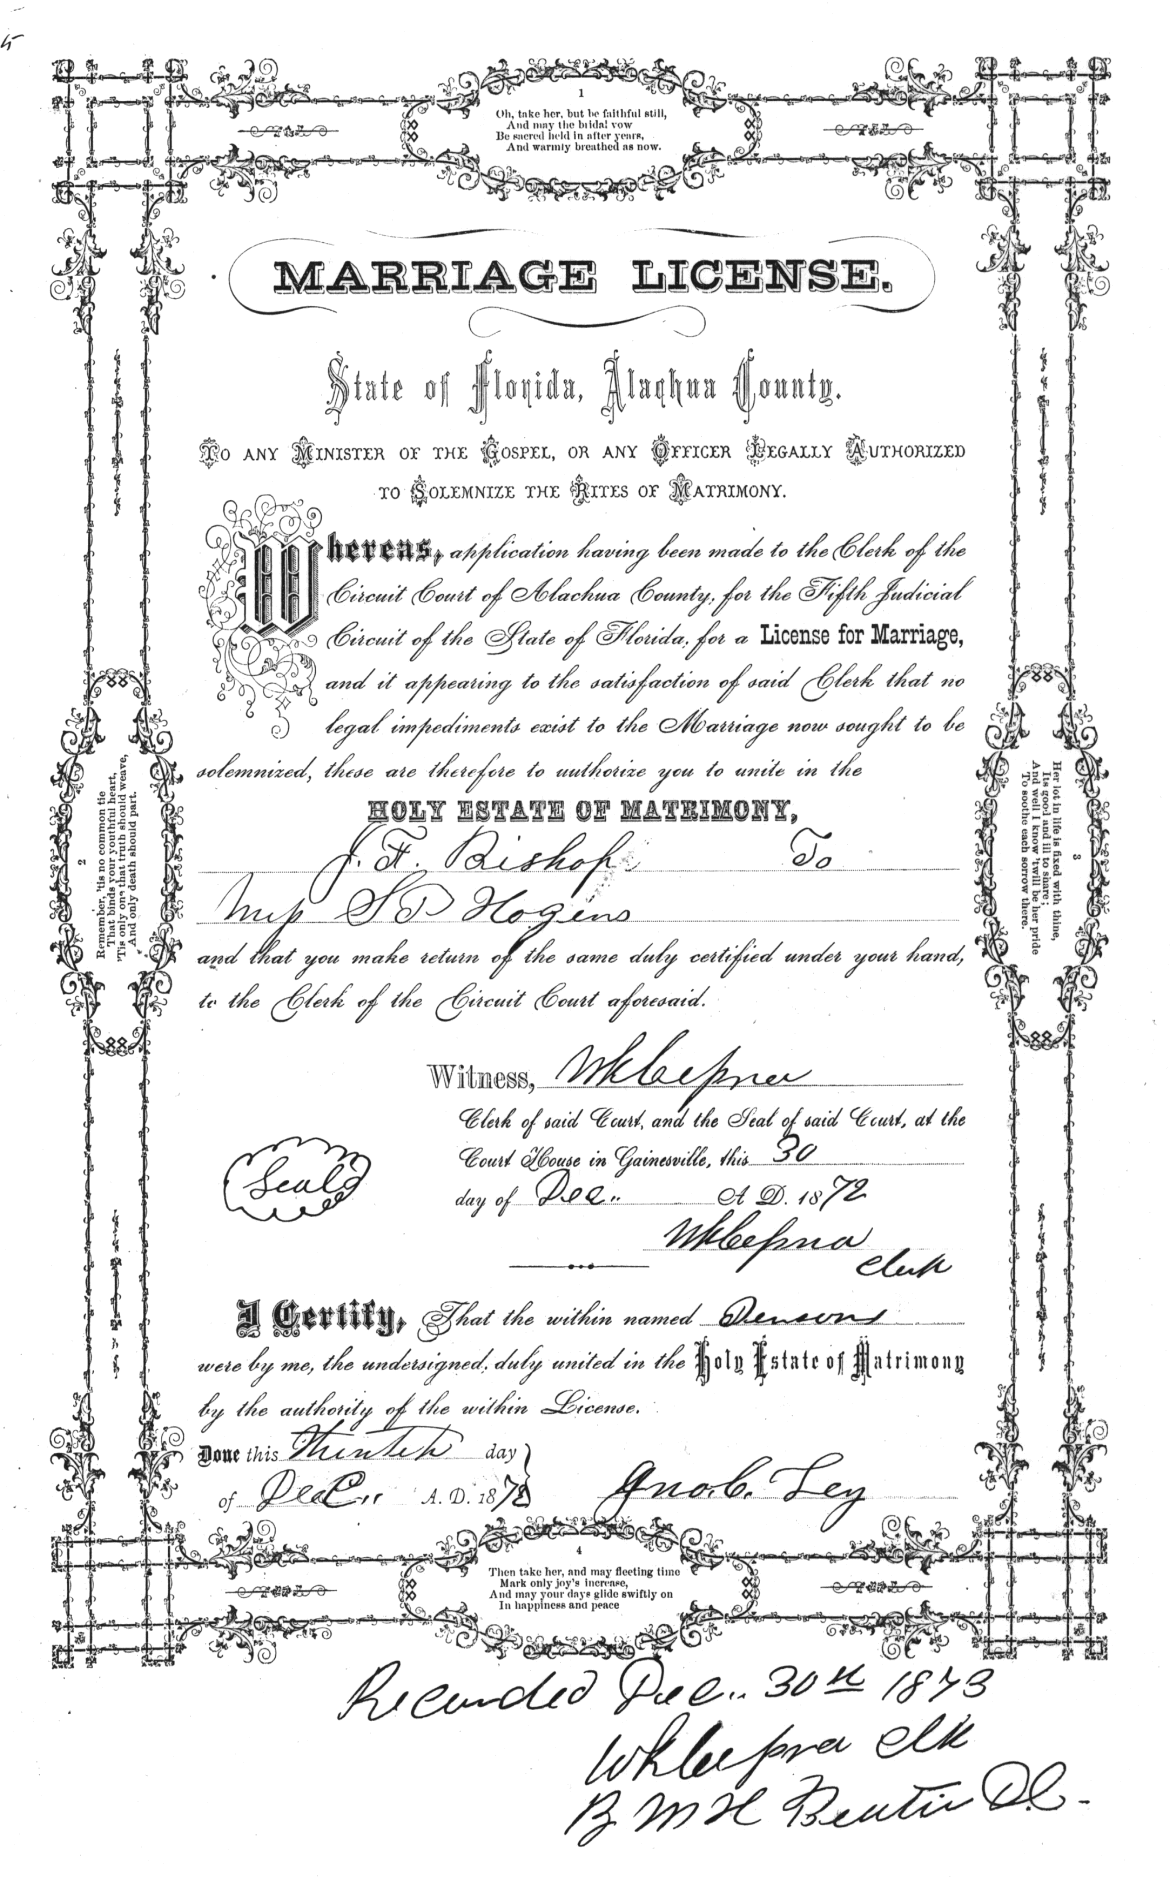 5
1
Oh, take her, but be faithful still,
And may the bridal vow
Be sacred held in after years,
And warmly breathed as now.
MARRIAGE LICENSE.
State of Florida, Alachua County.
TO ANY MINISTER OF THE GOSPEL, OR ANY OFFICER LEGALLY AUTHORIZED
TO SOLEMNIZE THE RITES OF MATRIMONY.
Whereas, application having been made to the Clerk of the
Circuit Court of Alachua County, for the Fifth Judicial
Circuit of the State of Florida, for a License for Marriage,
and it appearing to the satisfaction of said Clerk that no
legal impediments exist to the Marriage now sought to be
solemnized, these are therefore to authorize you to unite in the
HOLY ESTATE OF MATRIMONY,
J. H. Bishop To
Miss S P Hogins
and that you make return of the same duly certified under your hand,
to the Clerk of the Circuit Court aforesaid.
2
Remember, 'tis no common tie
That binds your youthful heart,
'Tis only one that truth should weave,
And only death should part.
3
Her lot in life is fixed with thine,
Its good and ill to share;
And well I know 'twill be her pride
To soothe each sorrow there.
Witness, Wk Cessna
Clerk of said Court, and the Seal of said Court, at the
Court House in Gainesville, this 30
day of Dec. A. D. 1872
Seal
Wk Cessna
Clerk
I Certify, That the within named Persons
were by me, the undersigned, duly united in the Holy Estate of Matrimony
by the authority of the within License.
Done this day
of Dec. A. D. 1872
Jno. C. Ley
4
Then take her, and may fleeting time
Mark only joy's increase,
And may your days glide swiftly on
In happiness and peace
Recorded Dec. 30th 1873
Wk Cessna Clk
By M H D.C.